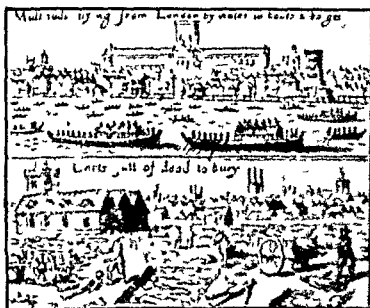 Multituds flying from London by water in boats & barges
Carts full of dead to bury